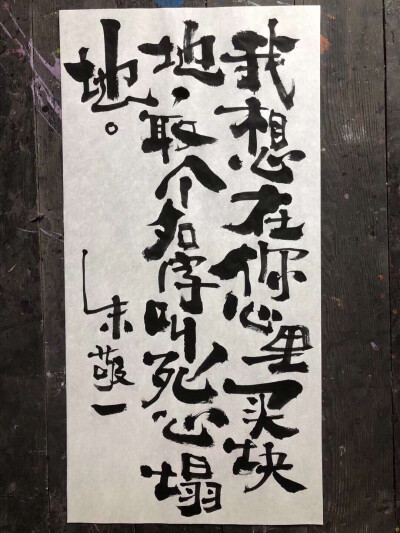 我想在你心里买块
地，取个名字叫死心塌
地。
朱敬一